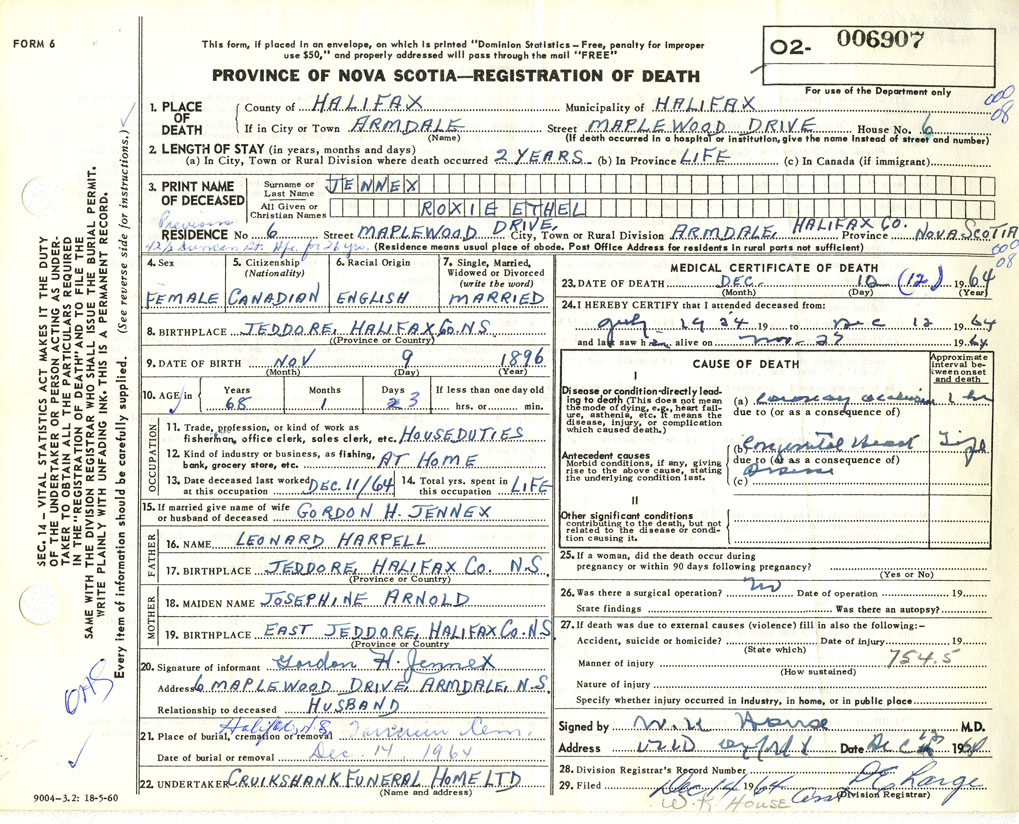 FORM 6
This form, if placed in an envelope, on which is printed "Dominion Statistics—Free, penalty for improper
use $50," and properly addressed will pass through the mail "FREE"
O2- 006907
For use of the Department only
PROVINCE OF NOVA SCOTIA—REGISTRATION OF DEATH
000
08
1. PLACE OF DEATH County of HALIFAX Municipality of HALIFAX
If in City or Town ARMDALE Street MAPLEWOOD DRIVE House No. 6
(Name) (If death occurred in a hospital or institution, give the name instead of street and number)
2. LENGTH OF STAY (in years, months and days)
(a) In City, Town or Rural Division where death occurred 2 YEARS (b) In Province LIFE (c) In Canada (if immigrant)
3. PRINT NAME OF DECEASED Surname or Last Name JENNEX
All Given or Christian Names ROXIE ETHEL
Previous
RESIDENCE No 6 Street MAPLEWOOD DRIVE, City, Town or Rural Division ARMDALE, HALIFAX CO. Province NOVA SCOTIA
Duncan St. Hfx. for 26 yrs. (Residence means usual place of abode. Post Office Address for residents in rural parts not sufficient)
000
08
4. Sex FEMALE
5. Citizenship (Nationality) CANADIAN
6. Racial Origin ENGLISH
7. Single, Married, Widowed or Divorced (write the word) MARRIED
8. BIRTHPLACE JEDDORE, HALIFAX Co. N.S.
(Province or Country)
9. DATE OF BIRTH NOV 9 1896
(Month) (Day) (Year)
10. AGE in Years 68 Months 1 Days 3 If less than one day old hrs. or min.
OCCUPATION
11. Trade, profession, or kind of work as
fisherman, office clerk, sales clerk, etc. HOUSEDUTIES
12. Kind of industry or business, as fishing,
bank, grocery store, etc. AT HOME
13. Date deceased last worked at this occupation DEC. 11/64 14. Total yrs. spent in this occupation LIFE
15. If married give name of wife
or husband of deceased GORDON H. JENNEX
FATHER
16. NAME LEONARD HARPELL
17. BIRTHPLACE JEDDORE, HALIFAX Co. N.S.
(Province or Country)
MOTHER
18. MAIDEN NAME JOSEPHINE ARNOLD
19. BIRTHPLACE EAST JEDDORE, HALIFAX Co. N.S
(Province or Country)
20. Signature of informant Gordon H. Jennex
Address 6 MAPLEWOOD DRIVE, ARMDALE, N.S.
Relationship to deceased HUSBAND
Halifax, N.S.
21. Place of burial, cremation or removal Fairview Cem.
Date of burial or removal Dec. 14, 1964
22. UNDERTAKER CRUIKSHANK FUNERAL HOME LTD
(Name and address)
MEDICAL CERTIFICATE OF DEATH
23. DATE OF DEATH DEC. 12 (12) 1964
(Month) (Day) (Year)
24. I HEREBY CERTIFY that I attended deceased from:
July 1934 19 to Dec 12 1964
and last saw her alive on Nov. 27 1964
CAUSE OF DEATH
Approximate interval between onset and death
I
Disease or condition directly leading to death (This does not mean
the mode of dying, e.g., heart failure, asthenia, etc. It means the
disease, injury, or complication
which caused death.)
(a) Coronary occlusion 1 hr
due to (or as a consequence of)
Antecedent causes
Morbid conditions, if any, giving
rise to the above cause, stating
the underlying condition last.
(b) Congenital Heart
due to (or as a consequence of)
Disease
(c)
II
Other significant conditions
contributing to the death, but not
related to the disease or condition causing it.
25. If a woman, did the death occur during
pregnancy or within 90 days following pregnancy?
(Yes or No)
26. Was there a surgical operation? No Date of operation 19
State findings Was there an autopsy?
27. If death was due to external causes (violence) fill in also the following:—
Accident, suicide or homicide? Date of injury 19
(State which)
Manner of injury 754.5
(How sustained)
Nature of injury
Specify whether injury occurred in industry, in home, or in public place
Signed by W. K House M.D.
Address Oxford St Date Dec 1964
28. Division Registrar's Record Number
29. Filed Dec 14 1964 D E Large
(Division Registrar)
W. K. HOUSE
SEC. 14 – VITAL STATISTICS ACT MAKES IT THE DUTY
OF THE UNDERTAKER OR PERSON ACTING AS UNDERTAKER TO OBTAIN ALL THE PARTICULARS REQUIRED
IN THE "REGISTRATION OF DEATH" AND TO FILE THE
SAME WITH THE DIVISION REGISTRAR WHO SHALL ISSUE THE BURIAL PERMIT.
WRITE PLAINLY WITH UNFADING INK. THIS IS A PERMANENT RECORD.
Every item of information should be carefully supplied. (See reverse side for instructions.)
9004-3.2: 18-5-60